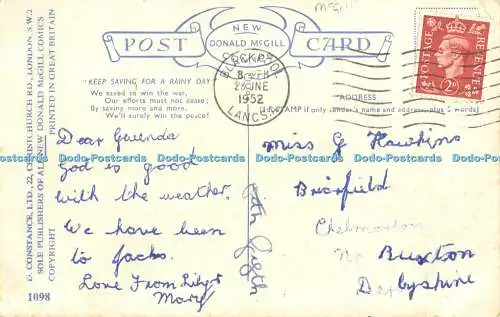 McGill
NEW
DONALD McGILL
POST CARD
BLACKPOOL
LANCS.
1952
POSTAGE REVENUE
2D
"KEEP SAVING FOR A RAINY DAY"
We saved to win the war,
Our efforts must not cease;
By saving more and more,
We'll surely win the peace!
ADDRESS
(1d. STAMP if only sender's name and address, plus 5 words)
Dear Gwenda
God is good
with the weather.
We have been
to
Love From Lily &
Mary
Miss G Hawkins
Brierfield
Chelmorton
Nr Buxton
Derbyshire
D. CONSTANCE, LTD., 22, CHRISTCHURCH RD., LONDON, S.W.2
SOLE PUBLISHERS OF ALL NEW DONALD McGILL COMICS
COPYRIGHT PRINTED IN GREAT BRITAIN
1098
Dodo-Postcards Dodo-Postcards Dodo-Postcards Dodo-Postcards Dodo-Postcards
Dodo-Postcards Dodo-Postcards Dodo-Postcards Dodo-Postcards Dodo-Postcards